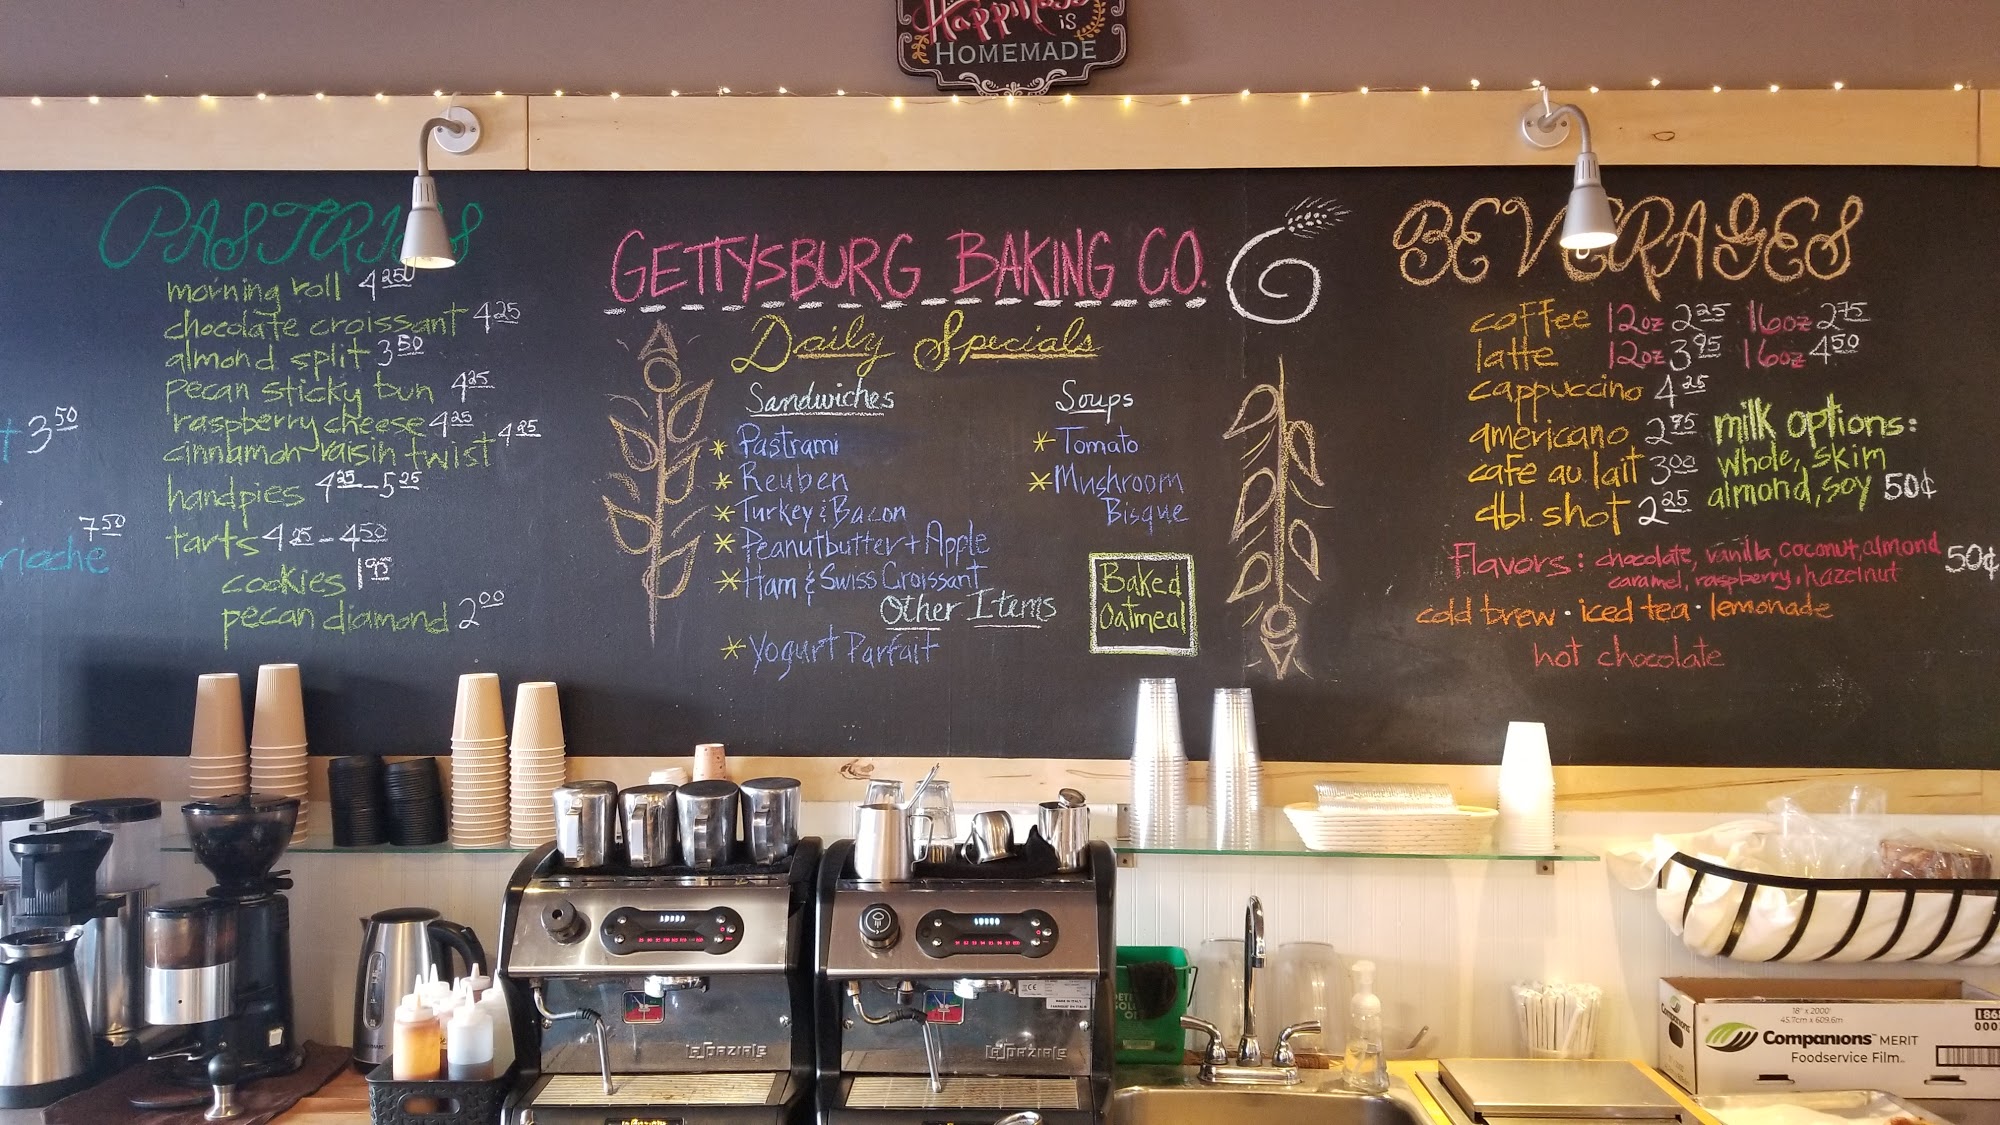 Happiness
is
HOMEMADE
PASTRIES
morning roll 4 25
chocolate croissant 4 25
almond split 3 50
pecan sticky bun 4 25
raspberry cheese 4 25
cinnamon raisin twist 4 25
handpies 4 25 - 5 25
tarts 4 25 - 4 50
cookies 1 95
pecan diamond 2 00
3 50
7 50
GETTYSBURG BAKING CO.
Daily Specials
Sandwiches
* Pastrami
* Reuben
* Turkey & Bacon
* Peanutbutter + Apple
* Ham & Swiss Croissant
Soups
* Tomato
* Mushroom
Bisque
Other Items
* Yogurt Parfait
Baked
Oatmeal
BEVERAGES
coffee 12oz 2 25 16oz 2 75
latte 12oz 3 95 16oz 4 50
cappuccino 4 25
americano 2 95
cafe au lait 3 00
dbl. shot 2 25
milk options:
whole, skim
almond, soy 50¢
Flavors: chocolate, vanilla, coconut, almond 50¢
caramel, raspberry, hazelnut
cold brew · iced tea · lemonade
hot chocolate
LASPAZIALE
LASPAZIALE
18" x 2000'
45.7cm x 609.6m
Companions™ MERIT
Foodservice Film